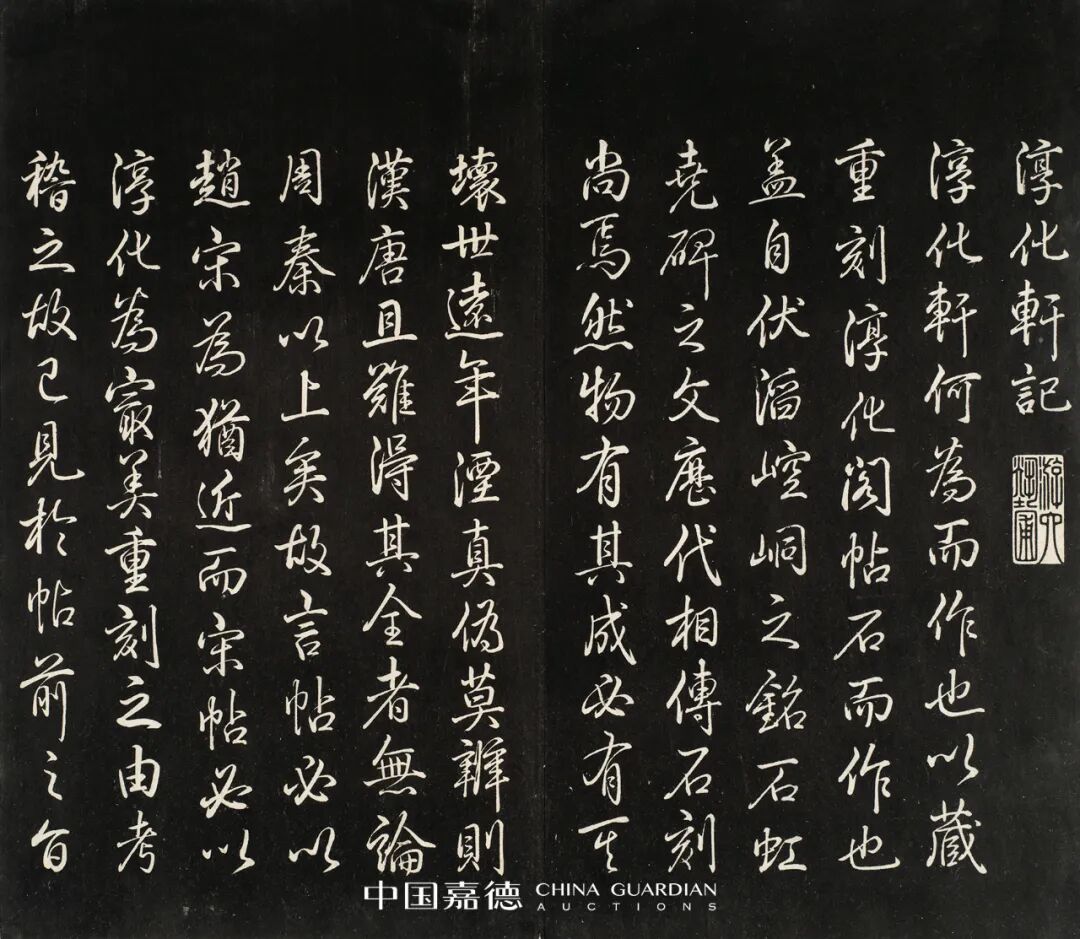 淳化軒記
游六藝圃
淳化軒何為而作也以藏
重刻淳化閣帖石而作也
盖自伏滔崆峒之銘石虹
堯碑之文歷代相傳石刻
尚焉然物有其成必有其
壞世遠年湮真偽莫辨則
漢唐且難得其全者無論
周秦以上矣故言帖必以
趙宋為猶近而宋帖必以
淳化為㝡美重刻之由考
稽之故已見於帖前之自
中国嘉德 CHINA GUARDIAN
AUCTIONS